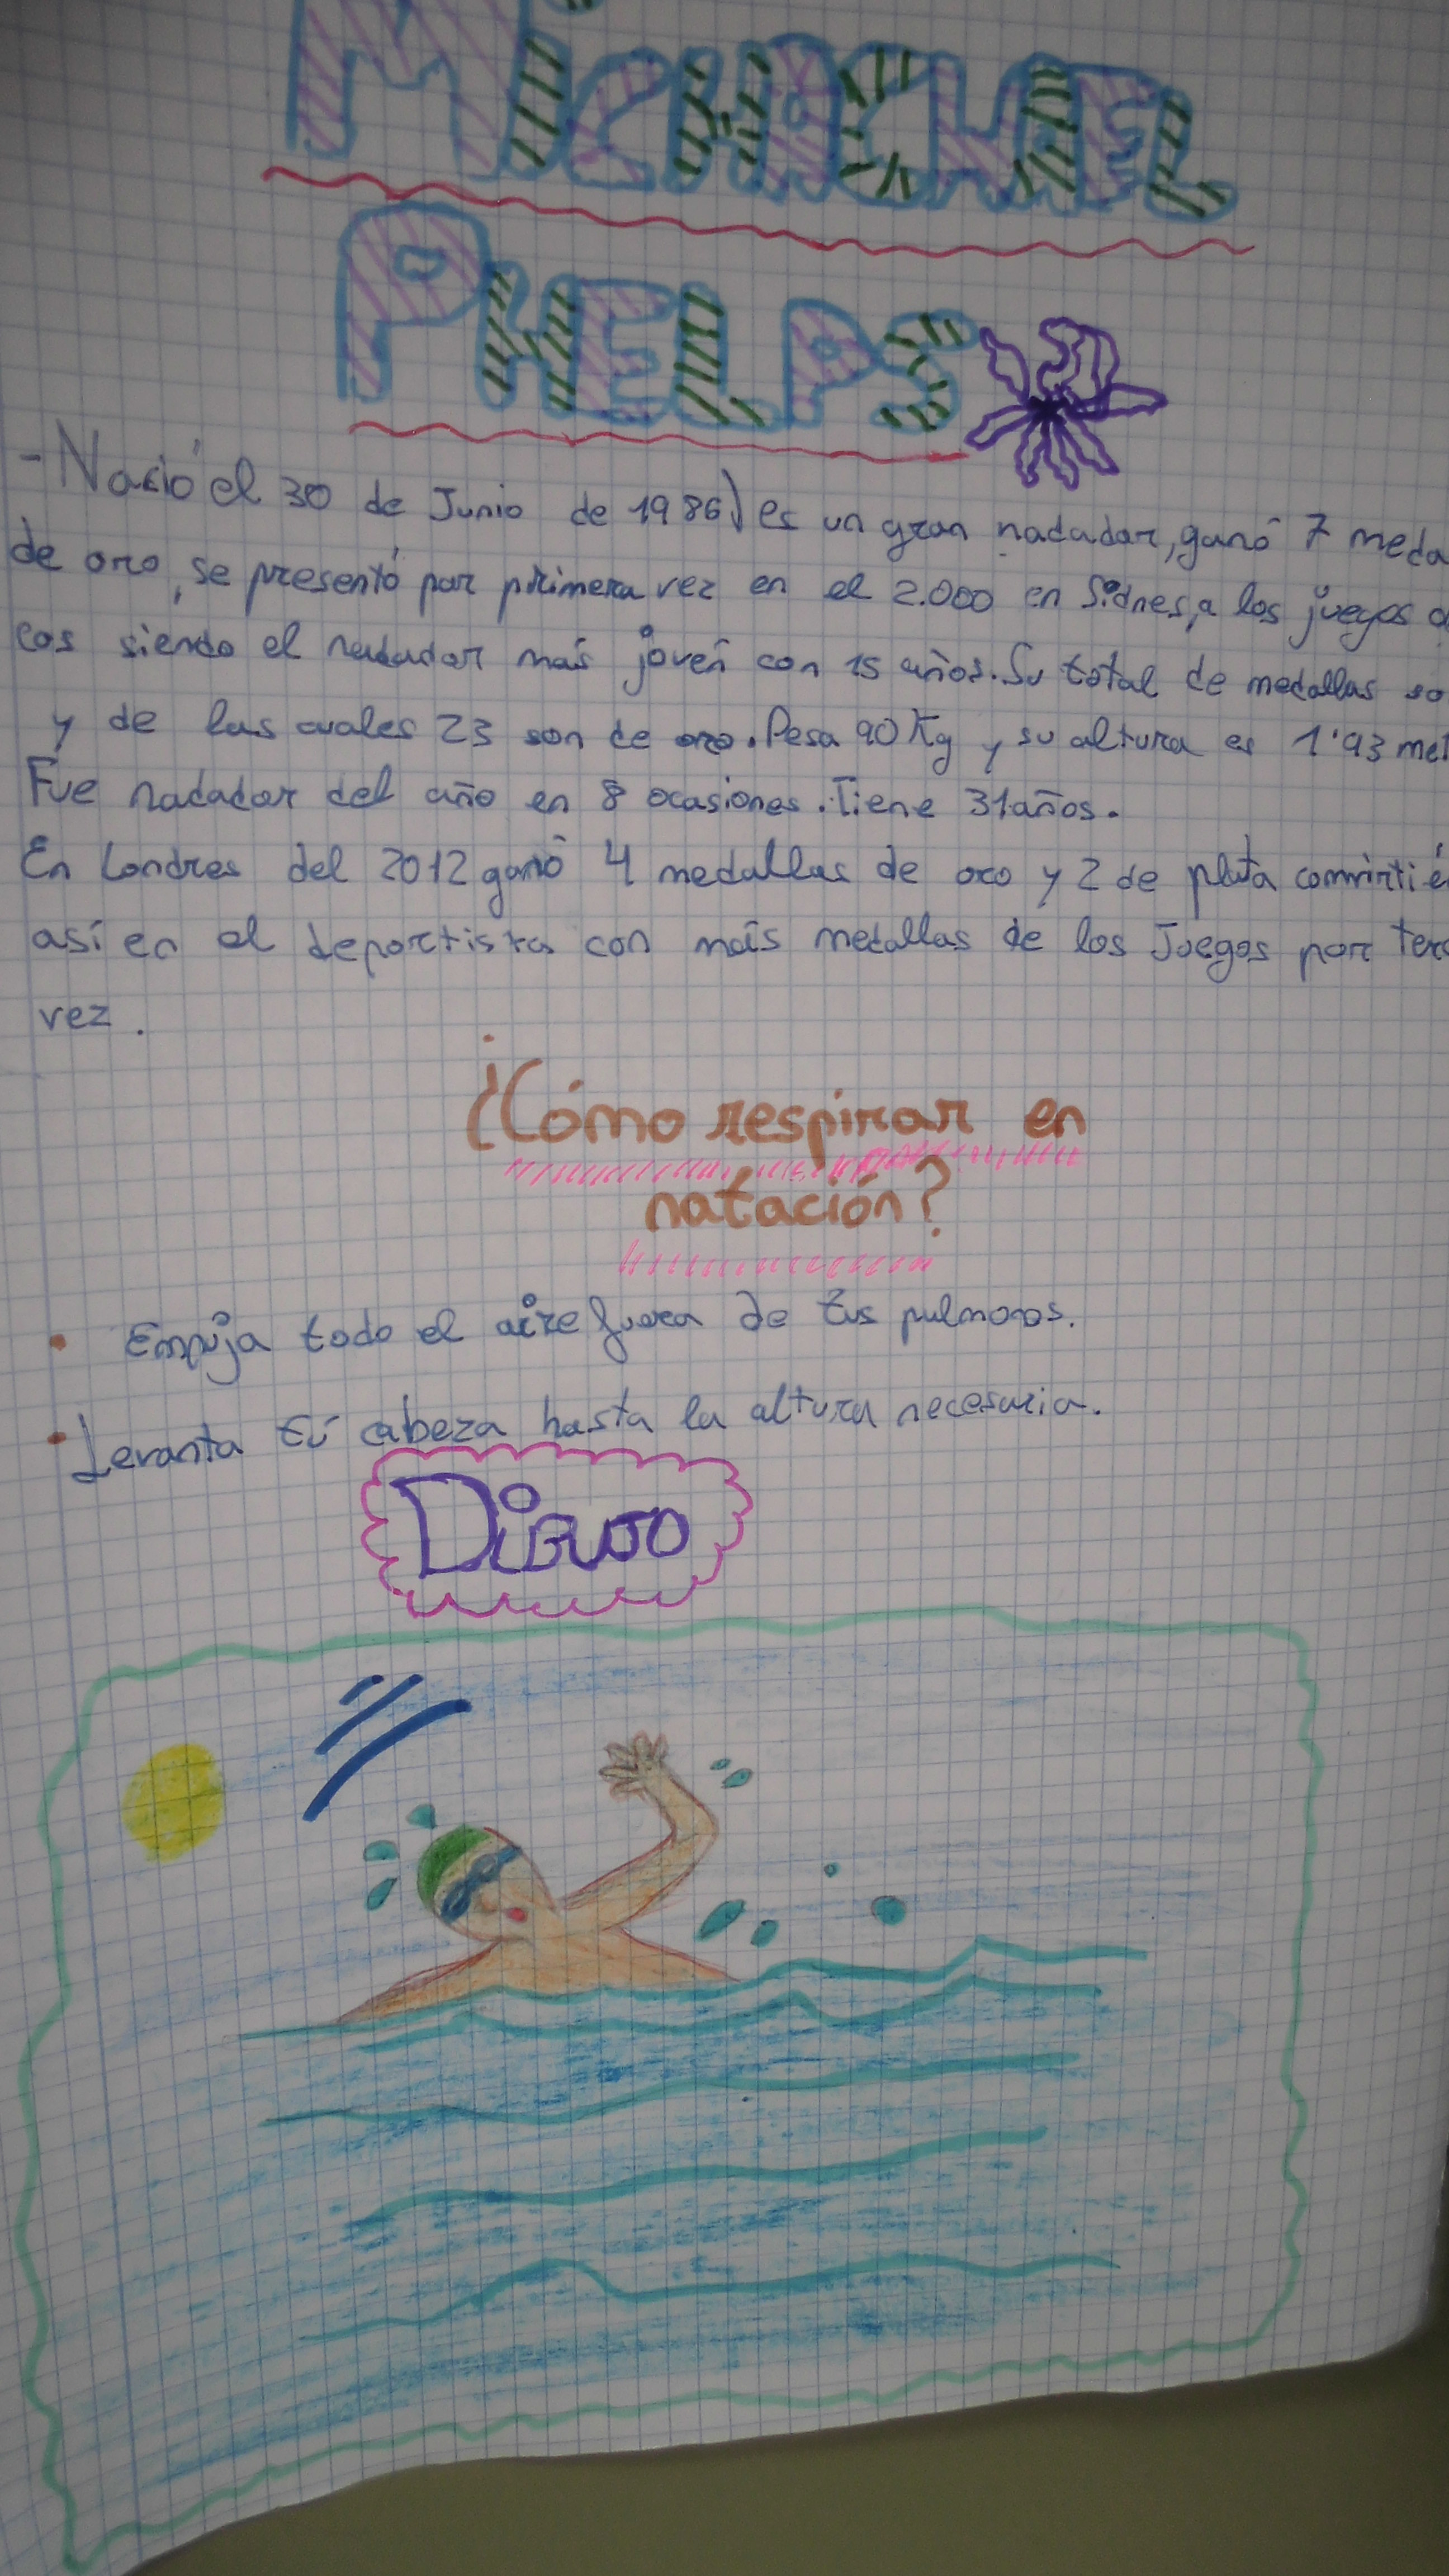 MICHACHAEL
PHELPS
- Nació el 30 de Junio de 1986) es un gran nadador, ganó 7 meda
de oro, se presentó por primera vez en el 2.000 en Sidnes, a los juegos o
cos siendo el nadador más joven con 15 años. Su total de medallas so
y de las cuales 23 son de oro. Pesa 90 Kg y su altura es 1'93 met
Fue nadador del año en 8 ocasiones. Tiene 31 años.
En Londres del 2012 ganó 4 medallas de oro y 2 de plata convirtié
así en el deportista con más medallas de los Juegos por terc
vez.
¿Cómo respirar en
natación?
• Empuja todo el aire fuera de tus pulmones.
• Levanta tú cabeza hasta la altura necesaria.
DIBUJO